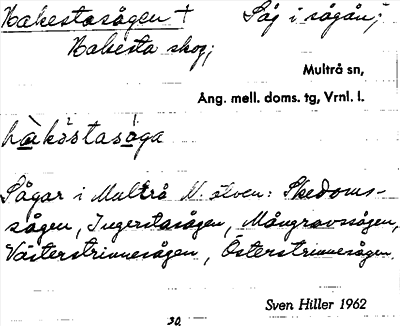 Hakestasågen † Såg i sågån;
Hakesta skog;
Multrå sn,
Ång. mell. doms. tg, Vrnl. l.
hàkòstasòga
Sågar i Multrå N. älven: Skedoms-
sågen, Ingerstasågen, Mångravssågen,
Västerstrinnesågen, Österstrinnesågen.
Sven Hiller 1962
30.